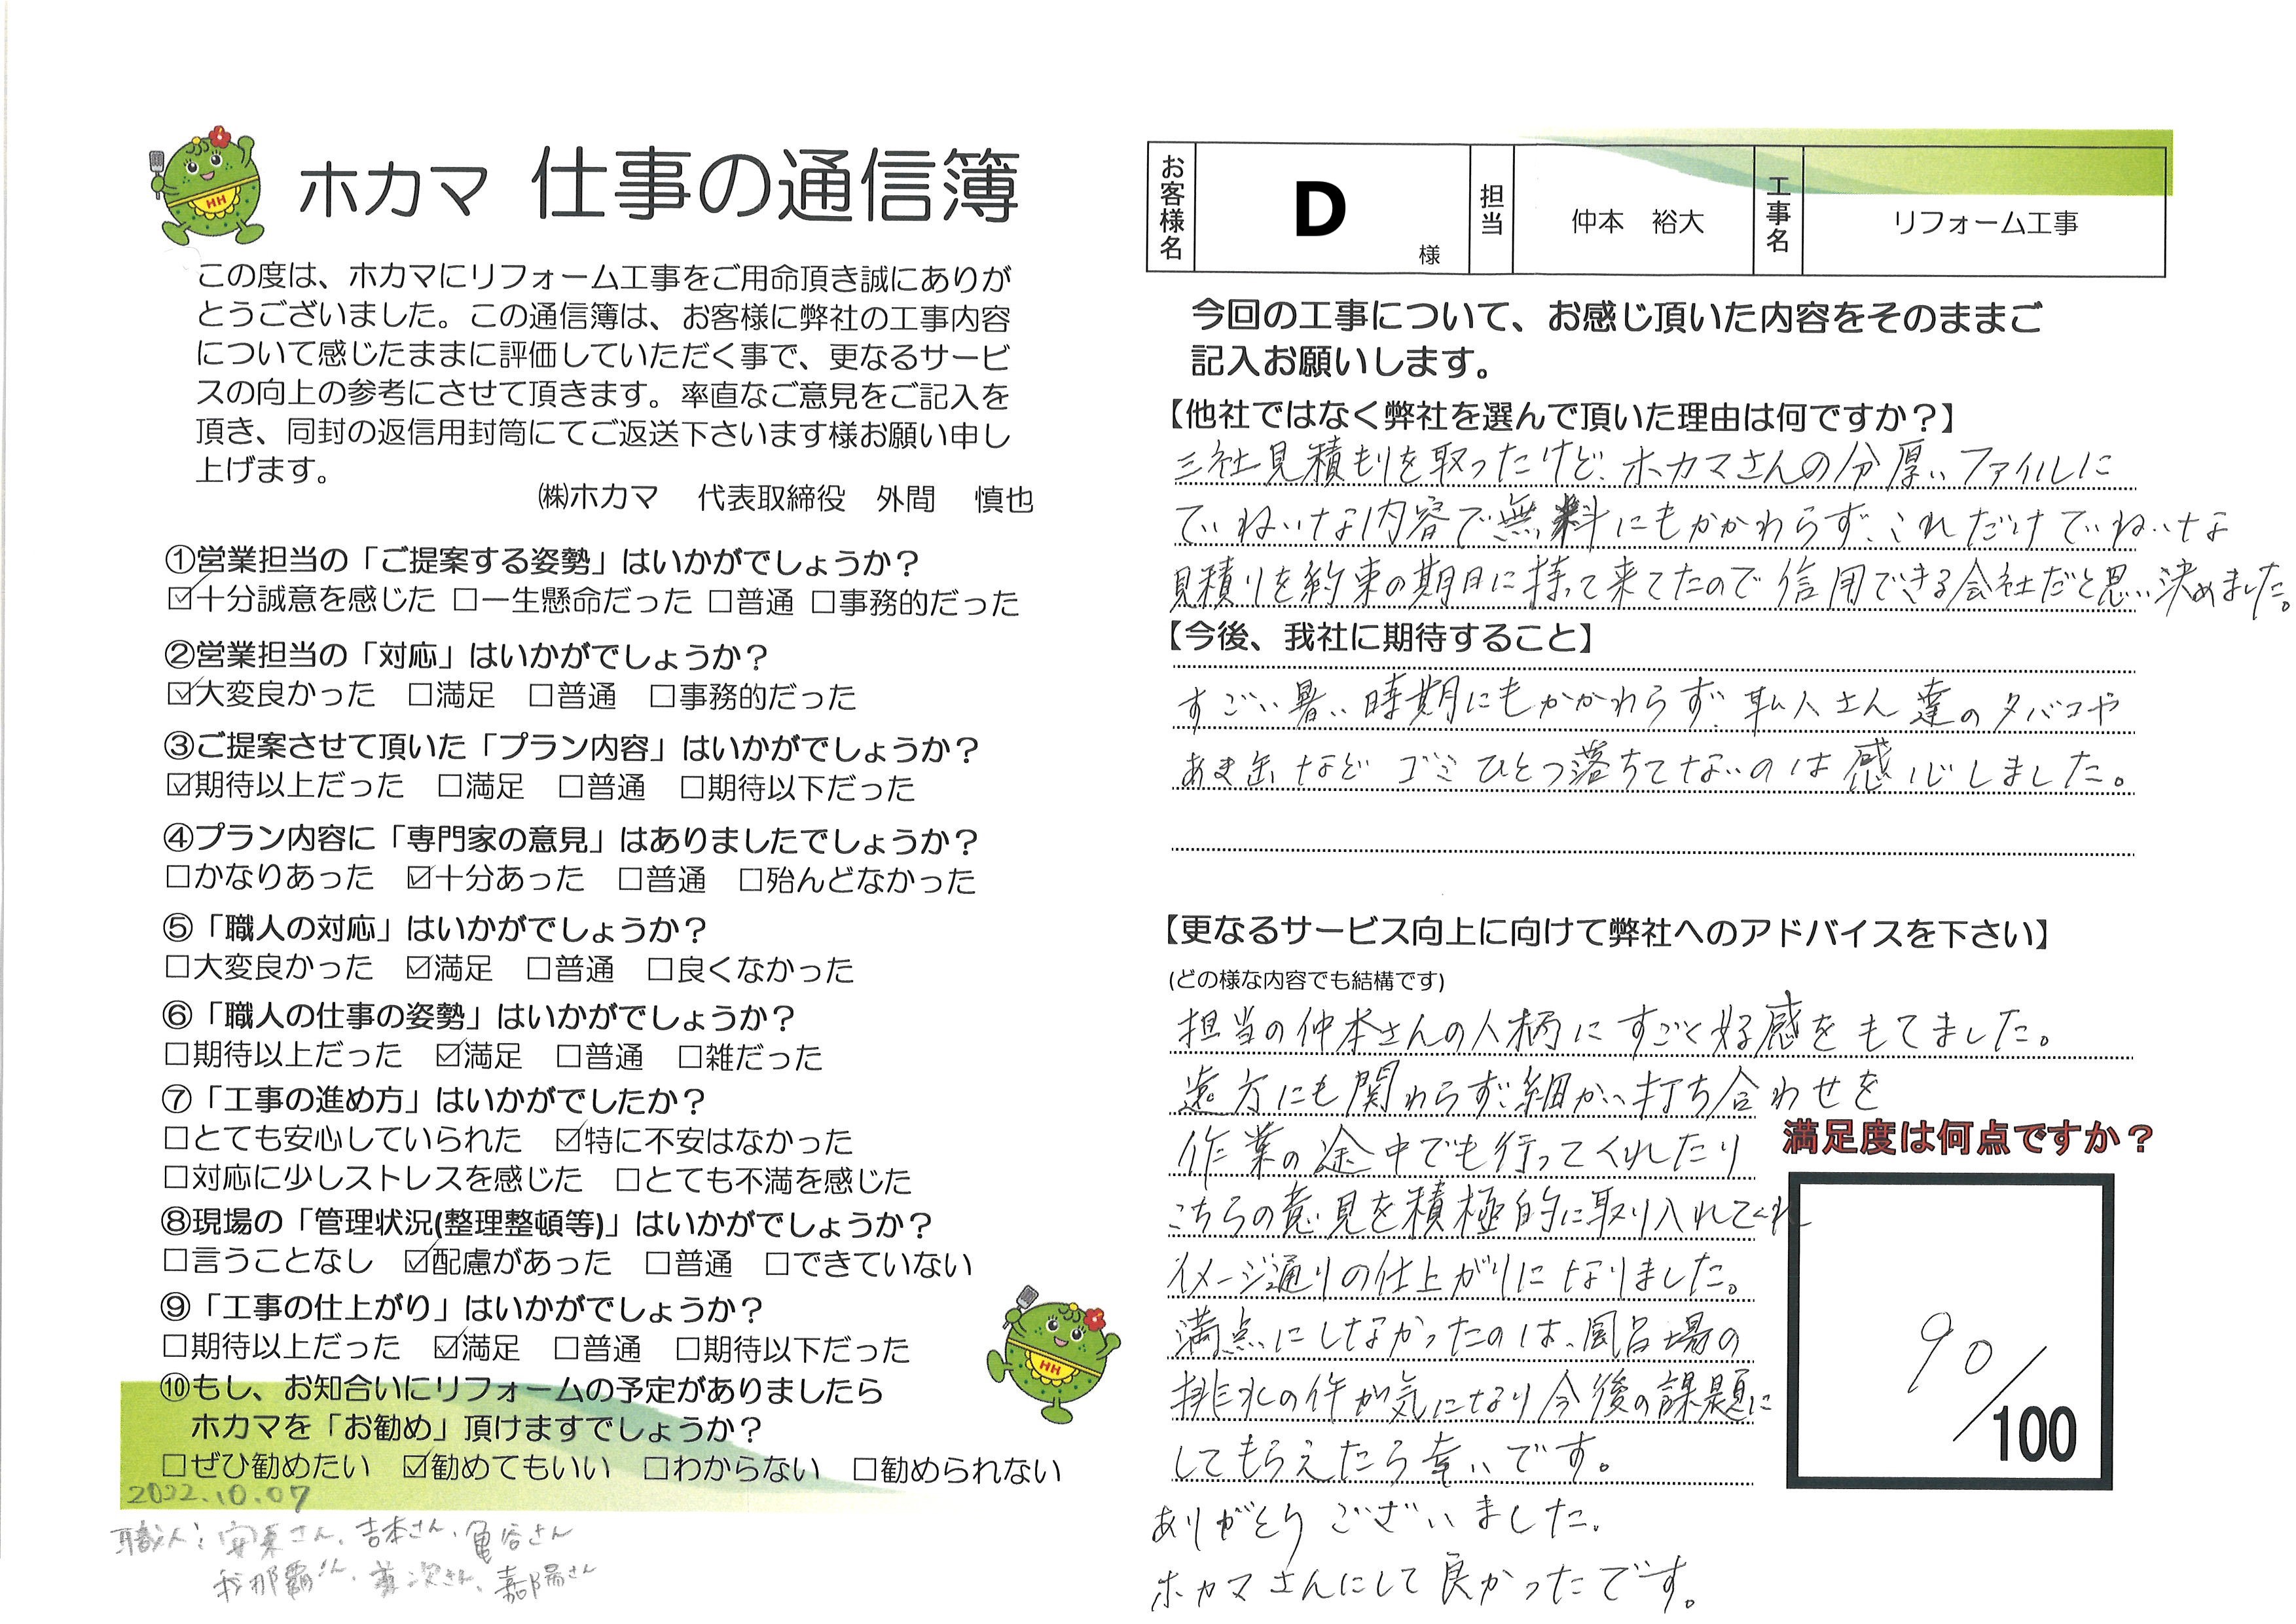 ホカマ 仕事の通信簿
HH
この度は、ホカマにリフォーム工事をご用命頂き誠にありが
とうございました。この通信簿は、お客様に弊社の工事内容
について感じたままに評価していただく事で、更なるサービ
スの向上の参考にさせて頂きます。率直なご意見をご記入を
頂き、同封の返信用封筒にてご返送下さいます様お願い申し
上げます。
㈱ホカマ 代表取締役 外間 慎也
①営業担当の「ご提案する姿勢」はいかがでしょうか？
☑十分誠意を感じた □一生懸命だった □普通 □事務的だった
②営業担当の「対応」はいかがでしょうか？
☑大変良かった □満足 □普通 □事務的だった
③ご提案させて頂いた「プラン内容」はいかがでしょうか？
☑期待以上だった □満足 □普通 □期待以下だった
④プラン内容に「専門家の意見」はありましたでしょうか？
□かなりあった ☑十分あった □普通 □殆んどなかった
⑤「職人の対応」はいかがでしょうか？
□大変良かった ☑満足 □普通 □良くなかった
⑥「職人の仕事の姿勢」はいかがでしょうか？
□期待以上だった ☑満足 □普通 □雑だった
⑦「工事の進め方」はいかがでしたか？
□とても安心していられた ☑特に不安はなかった
□対応に少しストレスを感じた □とても不満を感じた
⑧現場の「管理状況(整理整頓等)」はいかがでしょうか？
□言うことなし ☑配慮があった □普通 □できていない
⑨「工事の仕上がり」はいかがでしょうか？
□期待以上だった ☑満足 □普通 □期待以下だった
HH
⑩もし、お知合いにリフォームの予定がありましたら
ホカマを「お勧め」頂けますでしょうか？
□ぜひ勧めたい ☑勧めてもいい □わからない □勧められない
2022.10.07
職人：安東さん、吉本さん、亀谷さん
我那覇さん、さん、嘉陽さん
お客様名 D 様 担当 仲本 裕大 工事名 リフォーム工事
今回の工事について、お感じ頂いた内容をそのままご
記入お願いします。
【他社ではなく弊社を選んで頂いた理由は何ですか？】
三社見積もりを取ったけど、ホカマさんの分厚いファイルに
ていねいな内容で無料にもかかわらず、これだけていねいな
見積りを約束の期日に持って来てたので信用できる会社だと思い決めました。
【今後、我社に期待すること】
すごい暑い時期にもかかわらず、人さん達のタバコや
あき缶など ゴミひとつ落ちてないのは感心しました。
【更なるサービス向上に向けて弊社へのアドバイスを下さい】
(どの様な内容でも結構です)
担当の仲本さんの人柄にすごく好感をもてました。
遠方にも関わらず細かい打ち合わせを
作業の途中でも行ってくれたり
こちらの意見を積極的に取り入れてくれ
イメージ通りの仕上がりになりました。
満点にしなかったのは、風呂場の
排水の件が気になり今後の課題に
してもらえたら幸いです。
ありがとうございました。
ホカマさんにして良かったです。
満足度は何点ですか？
90/100